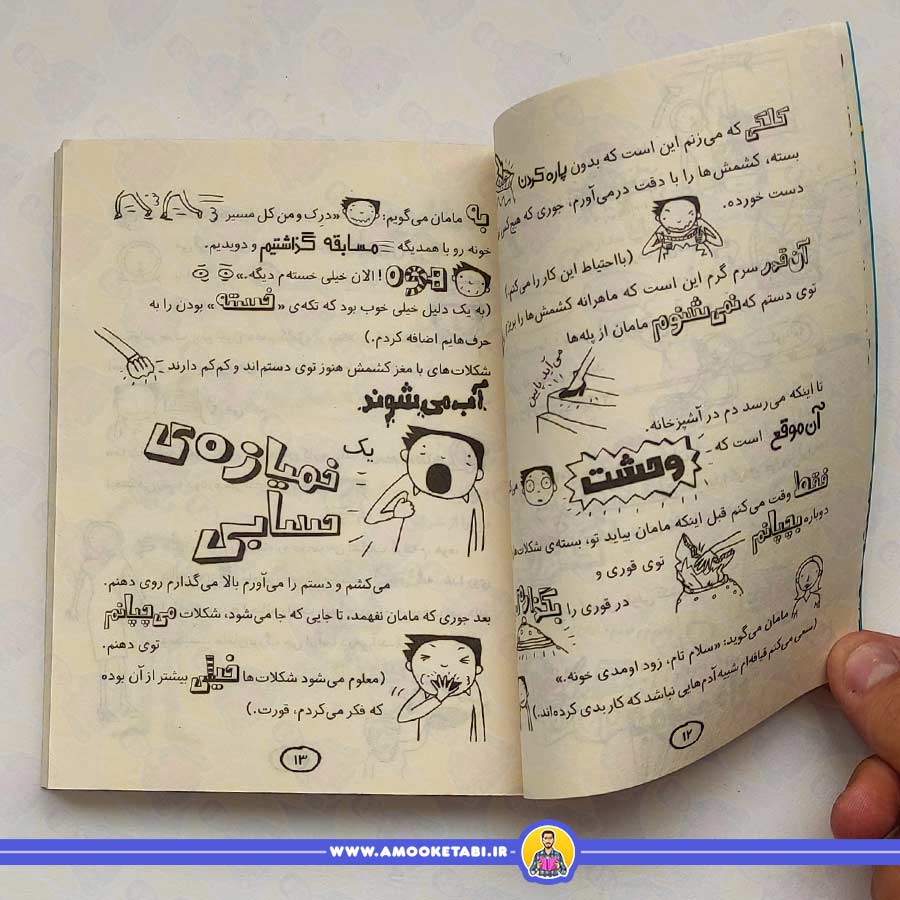 کلکی که می‌زنم این است که بدون پاره کردن
بسته، کشمش‌ها را با دقت درمی‌آورم، جوری که هیچ‌کس
دست خورده.
(با احتیاط این کار را می‌کنم.)
آن‌قدر سرم گرم این است که ماهرانه کشمش‌ها را بریزم
توی دستم که نمی‌شنوم مامان از پله‌ها
می‌آید پایین
تا اینکه می‌رسد دم در آشپزخانه.
آن موقع است که
وحشت
فقط وقت می‌کنم قبل اینکه مامان بیاید تو، بسته‌ی شکلات‌ها
دوباره بچپانم توی قوری و
در قوری را
مامان می‌گوید: «سلام تام، زود اومدی خونه.»
(سعی می‌کنم قیافه‌ام شبیه آدم‌هایی نباشد که کار بدی کرده‌اند.)
۱۲
به مامان می‌گویم: «دِرِک و من کل مسیر
خونه رو با همدیگه مسابقه گذاشتیم و دویدیم.
هووه! الان خیلی خسته‌م دیگه.»
(به یک دلیل خیلی خوب بود که تکه‌ی «خسته» بودن را به
حرف‌هایم اضافه کردم.)
شکلات‌های با مغز کشمش هنوز توی دستم‌اند و کم‌کم دارند
آب می‌شوند.
یک خمیازه‌ی
حسابی
می‌کشم و دستم را می‌آورم بالا می‌گذارم روی دهنم.
بعد جوری که مامان نفهمد، تا جایی که جا می‌شود، شکلات می‌چپانم
توی دهنم.
(معلوم می‌شود شکلات‌ها خیلی بیشتر از آن بوده
که فکر می‌کردم، قورت.)
۱۳
WWW.AMOOKETABI.IR